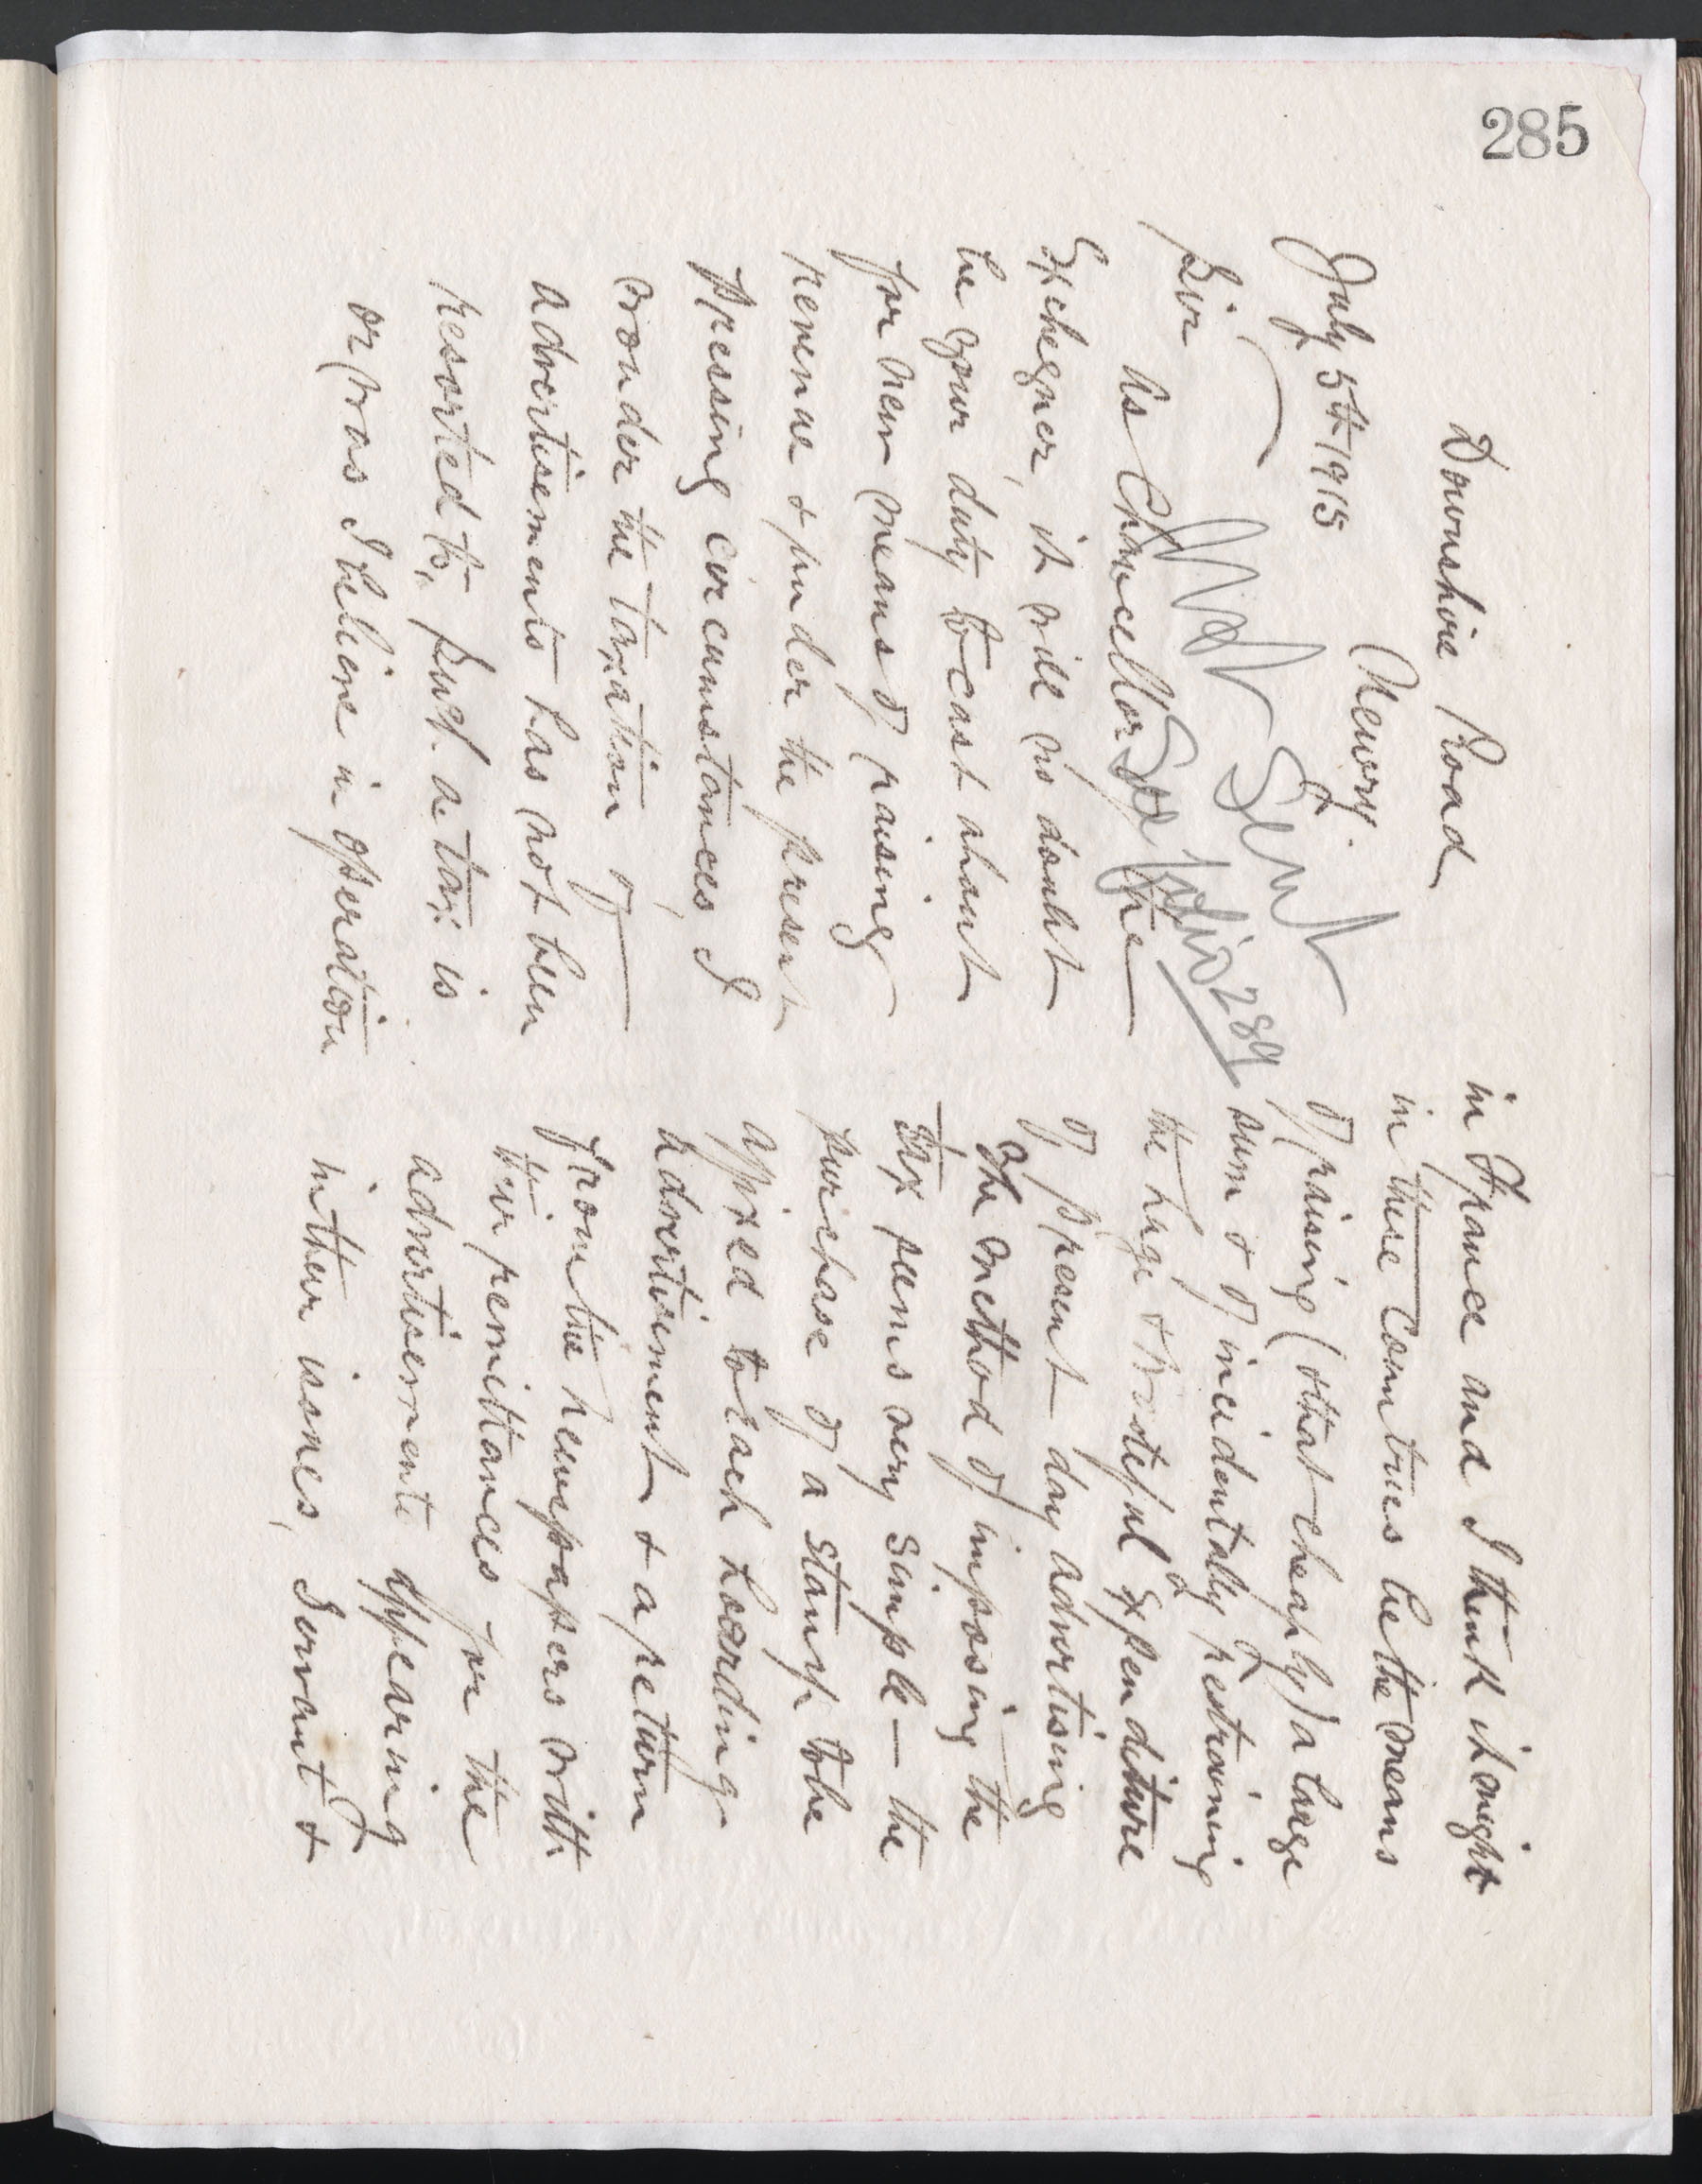 285
Downshire Road
Newry.
July 5th 1915
Not Sent
See folio 289
Sir,
As Chancellor of the
Exchequer, it will no doubt
be your duty to cast about
for new means of raising
revenue & under the present
pressing circumstances, I
wonder the taxation of
advertisements has not been
resorted to, such a tax is
or was I believe in operation
in France and I think it might
in these Countries be the means
of raising (& that cheaply) a large
sum & of incidentally restraining
the huge & wasteful expenditure
of present day advertising
The method of imposing the
tax seems very simple – the
purchase of a stamp to be
affixed to each hoarding
advertisement & a return
from the newspapers with
their remittances for the
advertisements appearing
in their issues, Servant &